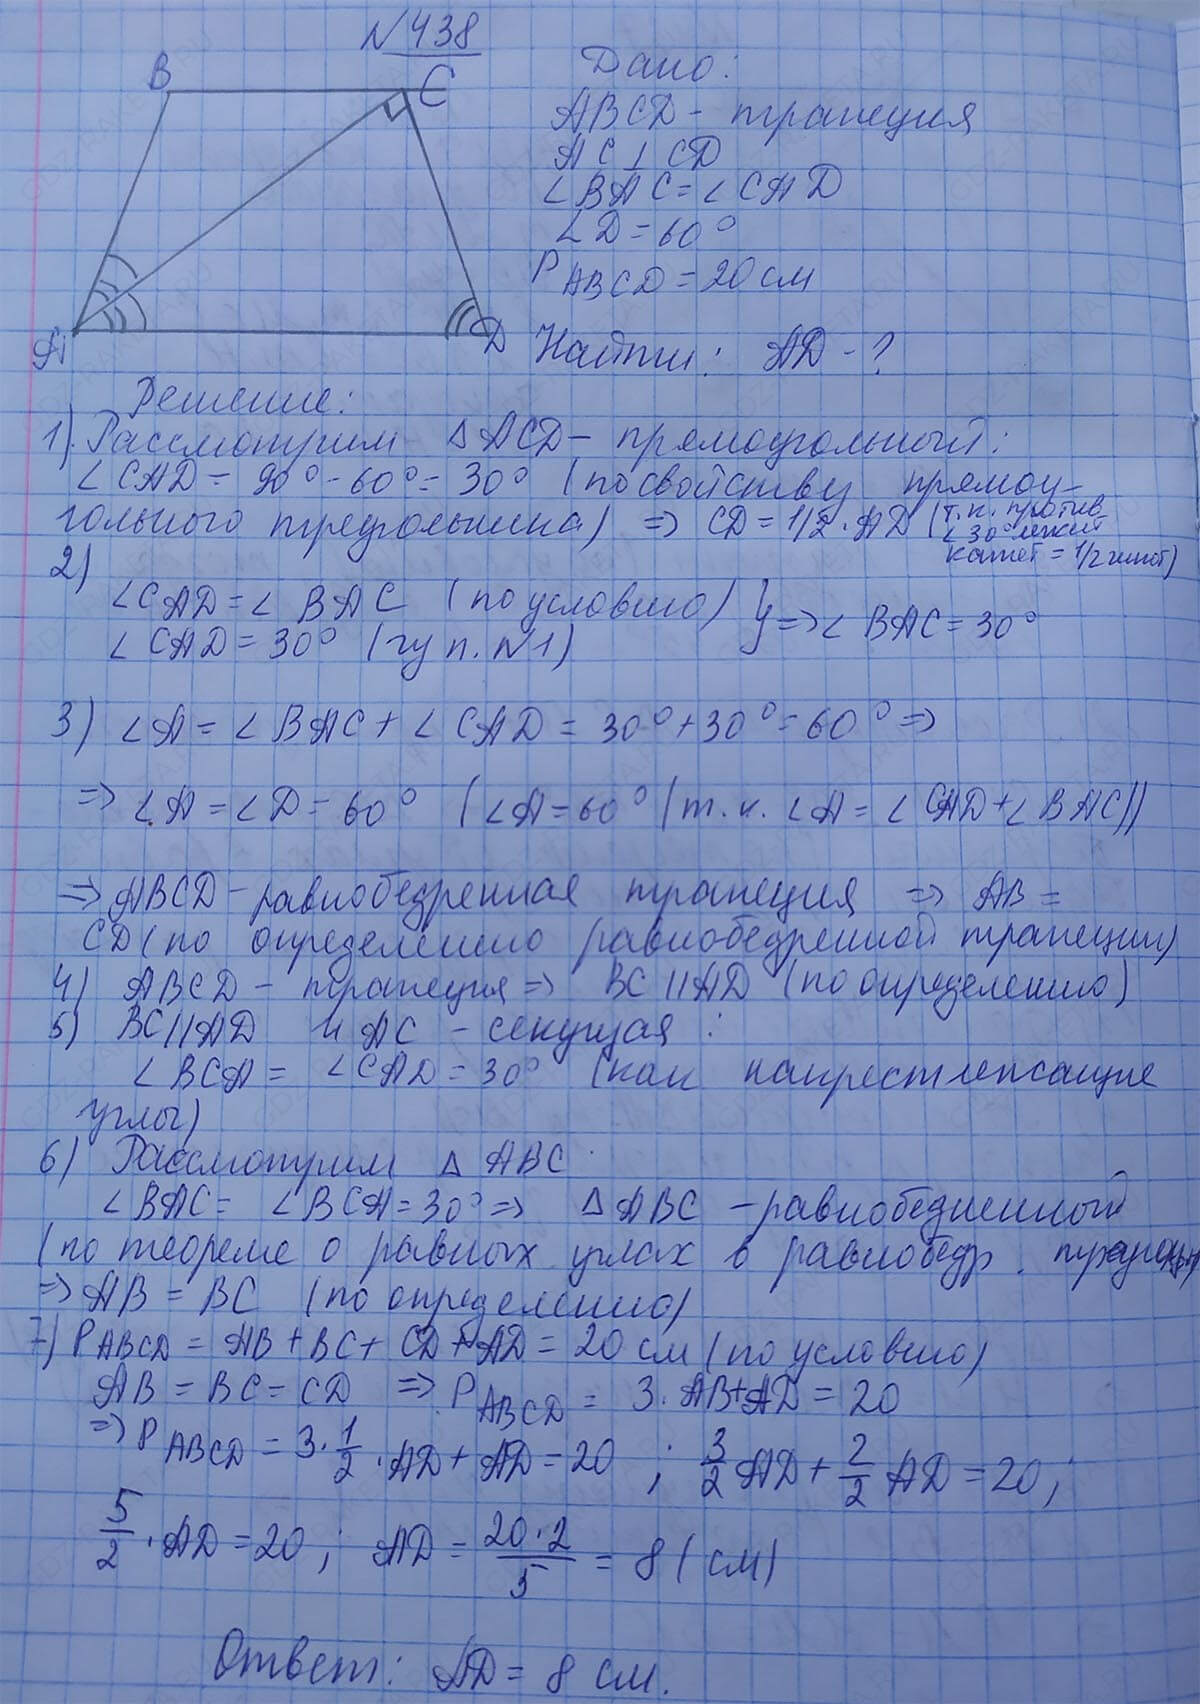 N 438
B
C
A
D
Дано:
ABCD - трапеция
AC ⊥ CD
∠BAC = ∠CAD
∠D = 60°
P ABCD = 20 см
Найти: AD - ?
Решение:
1) Рассмотрим △ACD - прямоугольный:
∠CAD = 90° - 60° = 30° (по свойству прямоу-
гольного треугольника) => CD = 1/2 · AD (т.к. против
∠30° лежит
катет = 1/2 гипот)
2)
∠CAD = ∠BAC (по условию) } => ∠BAC = 30°
∠CAD = 30° (из п. N1)
3) ∠A = ∠BAC + ∠CAD = 30° + 30° = 60° =>
=> ∠A = ∠D = 60° (∠A = 60° (т.к. ∠A = ∠CAD + ∠BAC))
=> ABCD - равнобедренная трапеция => AB =
CD (по определению равнобедренной трапеции)
4) ABCD - трапеция => BC || AD (по определению)
5) BC || AD и AC - секущая:
∠BCA = ∠CAD = 30° (как накрест лежащие
углы)
6) Рассмотрим △ABC
∠BAC = ∠BCA = 30° => △ABC - равнобедренный
(по теореме о равных углах в равнобедр.
=> AB = BC (по определению)
7) P ABCD = AB + BC + CD + AD = 20 см (по условию)
AB = BC = CD => P ABCD = 3 · AB + AD = 20
=> P ABCD = 3 · 1/2 · AD + AD = 20 ; 3/2 AD + 2/2 AD = 20 ;
5/2 · AD = 20 ; AD = 20 · 2 / 5 = 8 (см)
Ответ: AD = 8 см.